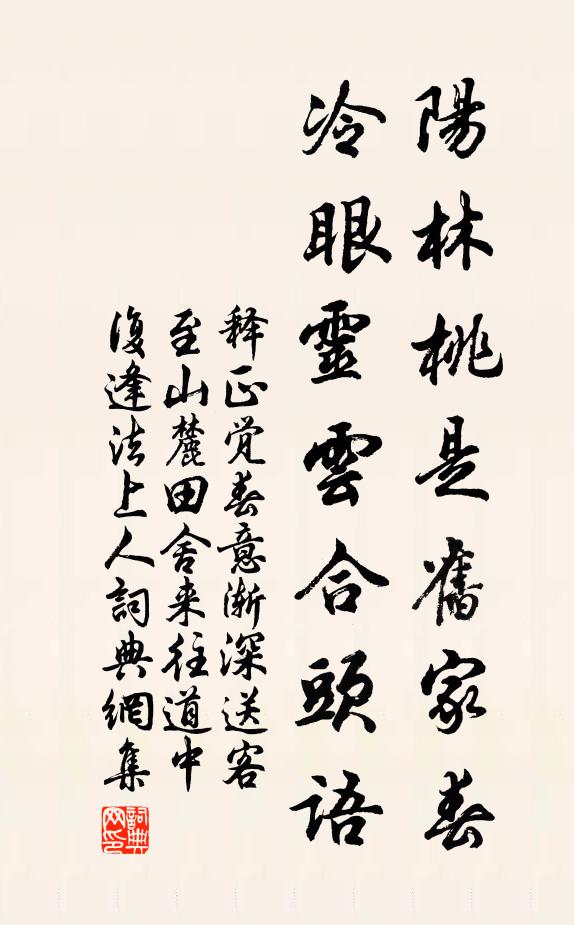 陽林桃是舊家春
冷眼靈雲合頭語
释正觉春意渐深送客
至山麓田舍来往道中
復逢法上人詞典網集
詞典
网印